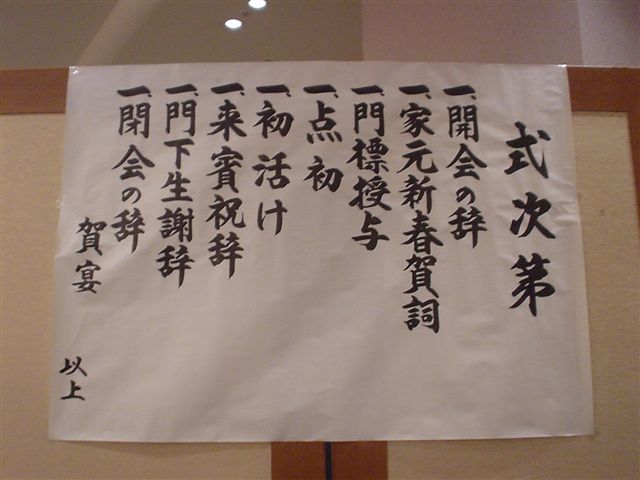 式次第
一、開会の辞
一、家元新春賀詞
一、門標授与
一、点初
一、初活け
一、来賓祝辞
一、門下生謝辞
一、閉会の辞
賀宴
以上